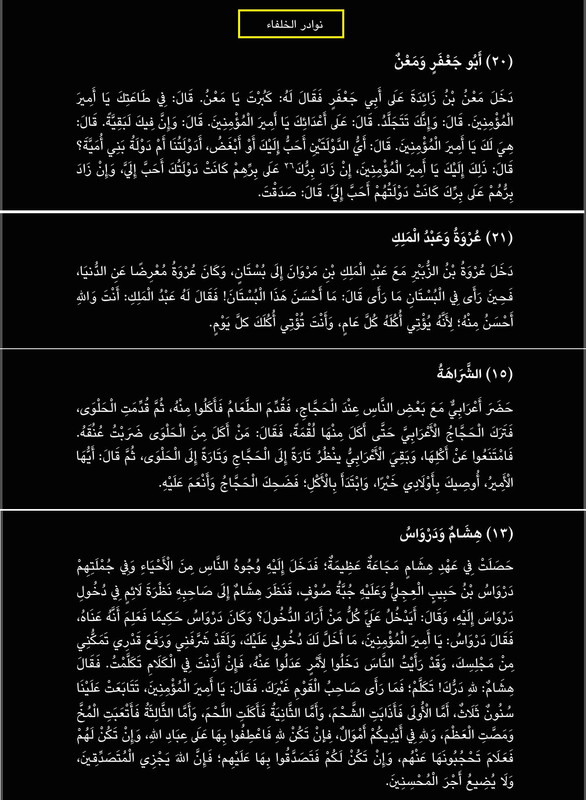 نوادر الخلفاء
(٢٠) أَبُو جَعْفَرٍ وَمَعْنٌ
دَخَلَ مَعْنُ بْنُ زَائِدَةَ عَلَى أَبِي جَعْفَرٍ فَقَالَ لَهُ: كَبُرْتَ يَا مَعْنُ. قَالَ: فِي طَاعَتِكَ يَا أَمِيرَ
الْمُؤْمِنِينَ. قَالَ: وَإِنَّكَ تَتَجَلَّدُ. قَالَ: عَلَى أَعْدَائِكَ يَا أَمِيرَ الْمُؤْمِنِينَ. قَالَ: وَإِنَّ فِيكَ لَبَقِيَّةً. قَالَ:
هِيَ لَكَ يَا أَمِيرَ الْمُؤْمِنِينَ. قَالَ: أَيُّ الدَّوْلَتَيْنِ أَحَبُّ إِلَيْكَ أَوْ أَبْغَضُ، أَدَوْلَتُنَا أَمْ دَوْلَةُ بَنِي أُمَيَّةَ؟
قَالَ: ذَلِكَ إِلَيْكَ يَا أَمِيرَ الْمُؤْمِنِينَ، إِنْ زَادَ بِرُّكَ٢٦ عَلَى بِرِّهِمْ كَانَتْ دَوْلَتُكَ أَحَبَّ إِلَيَّ، وَإِنْ زَادَ
بِرُّهُمْ عَلَى بِرِّكَ كَانَتْ دَوْلَتُهُمْ أَحَبَّ إِلَيَّ. قَالَ: صَدَقْتَ.
(٢١) عُرْوَةُ وَعَبْدُ الْمَلِكِ
دَخَلَ عُرْوَةُ بْنُ الزُّبَيْرِ مَعَ عَبْدِ الْمَلِكِ بْنِ مَرْوَانَ إِلَى بُسْتَانٍ، وَكَانَ عُرْوَةُ مُعْرِضًا عَنِ الدُّنْيَا،
فَحِينَ رَأَى فِي الْبُسْتَانِ مَا رَأَى قَالَ: مَا أَحْسَنَ هَذَا الْبُسْتَانَ! فَقَالَ لَهُ عَبْدُ الْمَلِكِ: أَنْتَ وَاللهِ
أَحْسَنُ مِنْهُ؛ لِأَنَّهُ يُؤْتِي أُكُلَهُ كُلَّ عَامٍ، وَأَنْتَ تُؤْتِي أُكُلَكَ كلَّ يَوْمٍ.
(١٥) الشَّرَاهَةُ
حَضَرَ أَعْرَابِيٌّ مَعَ بَعْضِ النَّاسِ عِنْدَ الْحَجَّاجِ، فَقُدِّمَ الطَّعَامُ فَأَكَلُوا مِنْهُ، ثُمَّ قُدِّمَتِ الْحَلْوَى،
فَتَرَكَ الْحَجَّاجُ الْأَعْرَابِيَّ حَتَّى أَكَلَ مِنْهَا لُقْمَةً، فَقَالَ: مَنْ أَكَلَ مِنَ الْحَلْوَى ضَرَبْتُ عُنُقَهُ.
فَامْتَنَعُوا عَنْ أَكْلِهَا، وَبَقِيَ الْأَعْرَابِيُّ يَنْظُرُ تَارَةً إِلَى الْحَجَّاجِ وَتَارَةً إِلَى الْحَلْوَى، ثُمَّ قَالَ: أَيُّهَا
الْأَمِيرُ، أُوصِيكَ بِأَوْلَادِي خَيْرًا، وَابْتَدَأَ بِالْأَكْلِ؛ فَضَحِكَ الْحَجَّاجُ وَأَنْعَمَ عَلَيْهِ.
(١٣) هِشَامٌ وَدَرْوَاسُ
حَصَلَتْ فِي عَهْدِ هِشَامٍ مَجَاعَةٌ عَظِيمَةٌ؛ فَدَخَلَ إِلَيْهِ وُجُوهُ النَّاسِ مِنَ الْأَحْيَاءِ وَفِي جُمْلَتِهِمْ
دَرْوَاسُ بْنُ حَبِيبٍ الْعِجِلِيُّ وَعَلَيْهِ جُبَّةُ صُوْفٍ، فَنَظَرَ هِشَامٌ إِلَى صَاحِبِهِ نَظْرَةَ لَائِمٍ فِي دُخُولِ
دِرْوَاسَ إِلَيْهِ، وَقَالَ: أَيَدْخُلُ عَلَيَّ كُلُّ مَنْ أَرَادَ الدُّخُولَ؟ وَكَانَ دَرْوَاسُ حَكِيمًا فَعَلِمَ أَنَّهُ عَنَاهُ،
فَقَالَ دَرْوَاسُ: يَا أَمِيرَ الْمُؤْمِنِينَ، مَا أَخَلَّ لَكَ دُخُولِي عَلَيْكَ، وَلَقَدْ شَرَّفَنِي وَرَفَعَ قَدْرِي تَمَكُّنِي
مِنْ مَجْلِسِكَ، وَقَدْ رَأَيْتُ النَّاسَ دَخَلُوا لِأَمْرٍ عَدَلُوا عَنْهُ، فَإِنْ أَذِنْتَ فِي الْكَلَامِ تَكَلَّمْتُ. فَقَالَ
هِشَامٌ: للهِ دَرُّكَ! تَكَلَّمْ؛ فَمَا رَأَى صَاحِبُ الْقَوْمِ غَيْرَكَ. فَقَالَ: يَا أَمِيرَ الْمُؤْمِنِينَ، تَتَابَعَتْ عَلَيْنَا
سُنُونٌ ثَلَاثٌ، أَمَّا الْأُولَى فَأَذَابَتِ الشَّحْمَ، وَأَمَّا الثَّانِيَةُ فَأَكَلَتِ اللَّحْمَ، وَأَمَّا الثَّالِثَةُ فَأَتْعَبَتِ الْمُخَّ
وَمَصَّتِ الْعَظْمَ، وَللهِ فِي أَيْدِيكُمْ أَمْوَالٌ، فَإِنْ تَكُنْ للهِ فَاعْطِفُوا بِهَا عَلَى عِبَادِ اللهِ، وَإِنْ تَكُنْ لَهُمْ
فَعَلَامَ تَحْجُبُونَهَا عَنْهُمْ، وَإِنْ تَكُنْ لَكُمْ فَتَصَدَّقُوا بِهَا عَلَيْهِم؛ فَإِنَّ اللهَ يَجْزِي الْمُتَصَدِّقِينَ،
وَلَا يُضِيعُ أَجْرَ الْمُحْسِنِينَ.